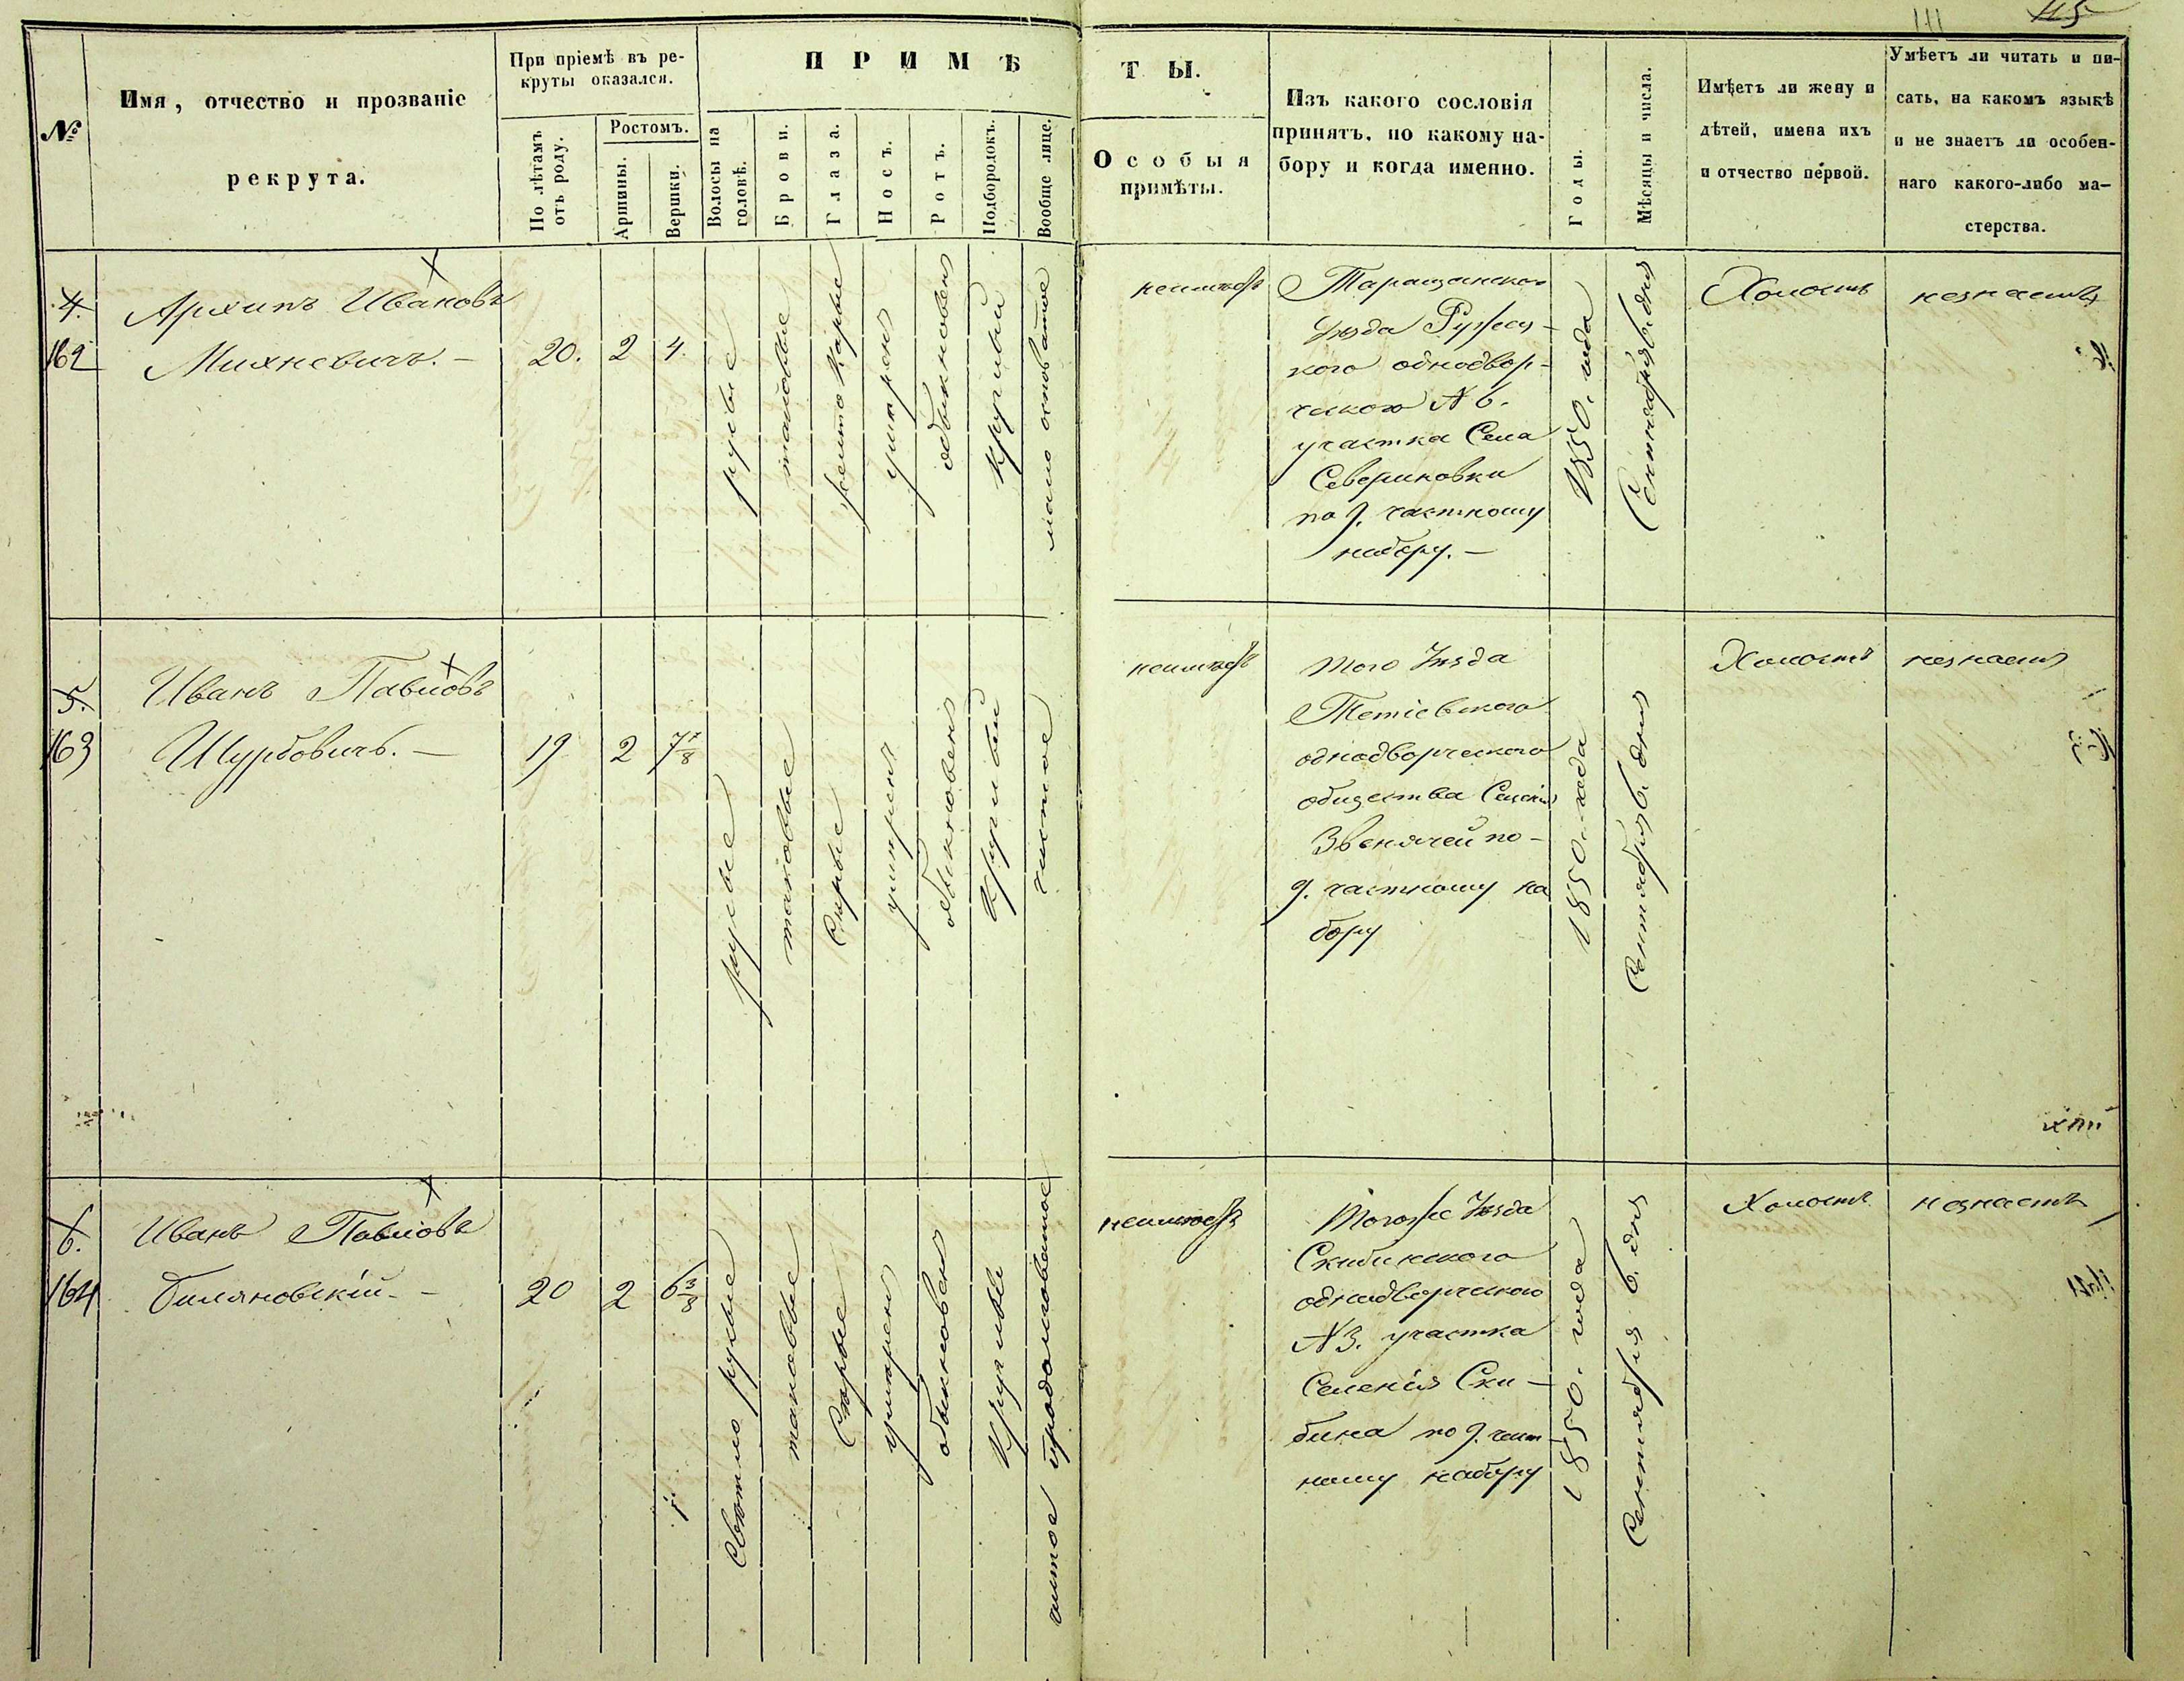 111 115
№
Имя, отчество и прозваніе
рекрута.
При пріемѣ въ ре-
круты оказался.
По лѣтамъ
отъ роду.
Ростомъ.
Аршины.
Вершки.
ПРИМѢ
Волосы на
головѣ.
Брови.
Глаза.
Носъ.
Ротъ.
Подбородокъ.
Вообще лице.
ТЫ.
Особыя
примѣты.
Изъ какого сословія
принятъ, по какому на-
бору и когда именно.
Годы.
Мѣсяцы и числа.
Имѣетъ ли жену и
дѣтей, имена ихъ
и отчество первой.
Умѣетъ ли читать и пи-
сать, на какомъ языкѣ
и не знаетъ ли особен-
наго какого-либо ма-
стерства.
4.
162
Архипъ Ивановъ
Михневичъ. —
20.
2
4.
русые
таковые
желто карые
умѣрен
обыкновен
круглый
неимѣетъ
Таращанского
Уѣзда Ружес-
кого однодвор-
ческого № 6.
участка Села
Севериновки
по 9. частному
набору. —
1850. года
Сентября 6. дня
Холостъ
незнаетъ
5.
163
Иванъ Павловъ
Шурбовичъ. —
19
2
7 7/8
русые
таковые
Сѣрые
умѣрен
обыкновен
круглый
чистое
неимѣетъ
того Уѣзда
Тетіевского
однодворческого
общества Селенія
Звенячей по-
9. частному на
бору
1850. года
Сентября 6. дня
Холостъ
незнаетъ
6.
164
Иванъ Павловъ
Биляновскій. —
20
2
6 3/8
Свѣтло русые
таковые
Сѣрые
умѣрен
обыкновен
круглый
чистое продолговатое
неимѣетъ
тогоже Уѣзда
Скибинского
однодворческого
№ 3. участка
Селенія Ски-
бина по 9. част
ному набору
1850. года
Сентября 6. дня
Холостъ
незнаетъ